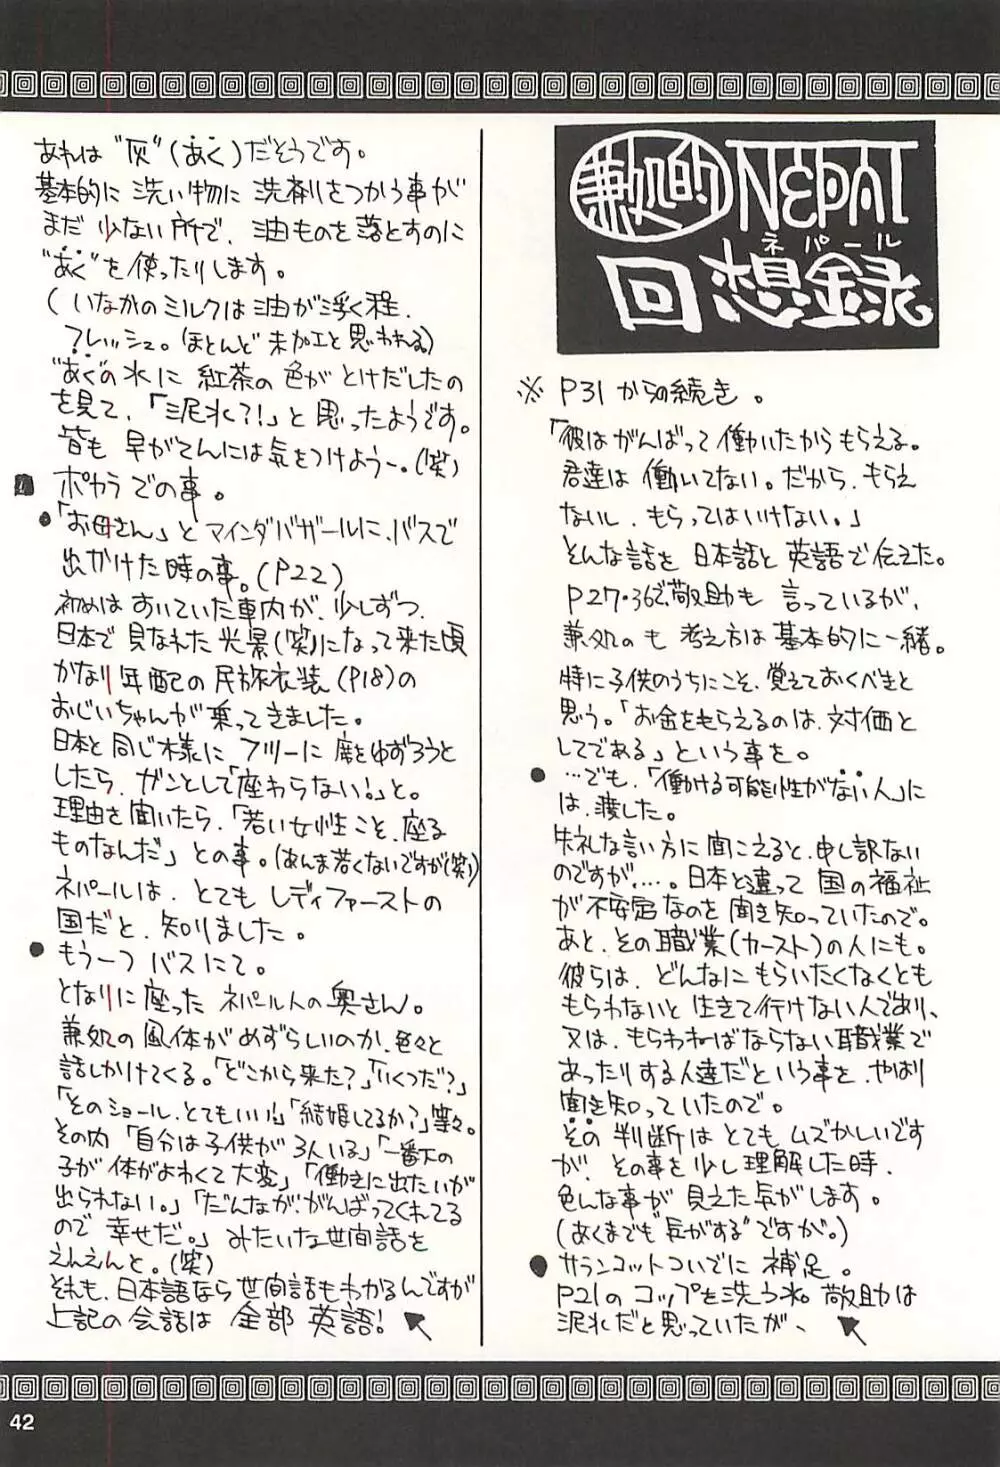 兼処的 NEPAL
ネパール
回想録
※ P31からの続き。
「彼はがんばって働いたからもらえる。
君達は働いてない。だから、もらえ
ないし、もらってはいけない。」
そんな話を日本語と英語で伝えた。
P27・36で敬助も言っているが、
兼処のも考え方は基本的に一緒。
特に子供のうちにこそ、覚えておくべきと
思う。「お金をもらえるのは、対価と
してである」という事を。
●…でも、「働ける可能性がない人」に
は、渡した。
失礼な言い方に聞こえると、申し訳ない
のですが、…。日本と違って国の福祉
が不安定なのを聞き知っていたので。
あと、その職業(カースト)の人にも。
彼らは、どんなにもらいたくなくとも
もらわないと生きて行けない人であり、
又は、もらわねばならない職業で
あったりする人達だという事を、やはり
聞き知っていたので。
その判断はとてもムズかしいです
が、その事を少し理解した時、
色んな事が見えた気がします。
(あくまでも"気がする"ですが。)
●サランコットついでに補足。
P21のコップを洗う水。敬助は
泥水だと思っていたが、
あれは"灰"(あく)だそうです。
基本的に洗い物に洗剤をつかう事が
まだ少ない所で、油ものを落とすのに
"あく"を使ったりします。
(いなかのミルクは油が浮く程、
フレッシュ。(ほとんど未加工と思われる)
"あく"の水に紅茶の色がとけだしたの
を見て、「泥水?!」と思ったようです。
皆も早がてんには気をつけようー。(笑)
■ポカラでの事。
●「お母さん」とマインダバザールに、バスで
出かけた時の事。(P22)
初めはすいていた車内が、少しずつ、
日本で見なれた光景(笑)になって来た頃
かなり年配の民族衣装(P18)の
おじいちゃんが乗ってきました。
日本と同じ様にフツーに席をゆずろうと
したら、ガンとして「座わらない!」と。
理由を聞いたら、「若い女性こそ、座る
ものなんだ」との事。(あんま若くないですが(笑))
ネパールは、とてもレディファーストの
国だと、知りました。
●もう一つバスにて。
となりに座ったネパール人の奥さん。
兼処の風体がめずらしいのか、色々と
話しかけてくる。「どこから来た?」「いくつだ?」
「そのショール、とてもいい!」「結婚してるか?」等々。
その内「自分は子供が3人いる」「一番下の
子が体がよわくて大変」「働きに出たいが
出られない。」「だんなが、がんばってくれてる
ので幸せだ。」みたいな世間話を
えんえんと。(笑)
それも、日本語なら世間話もわかるんですが
上記の会話は全部英語!
42